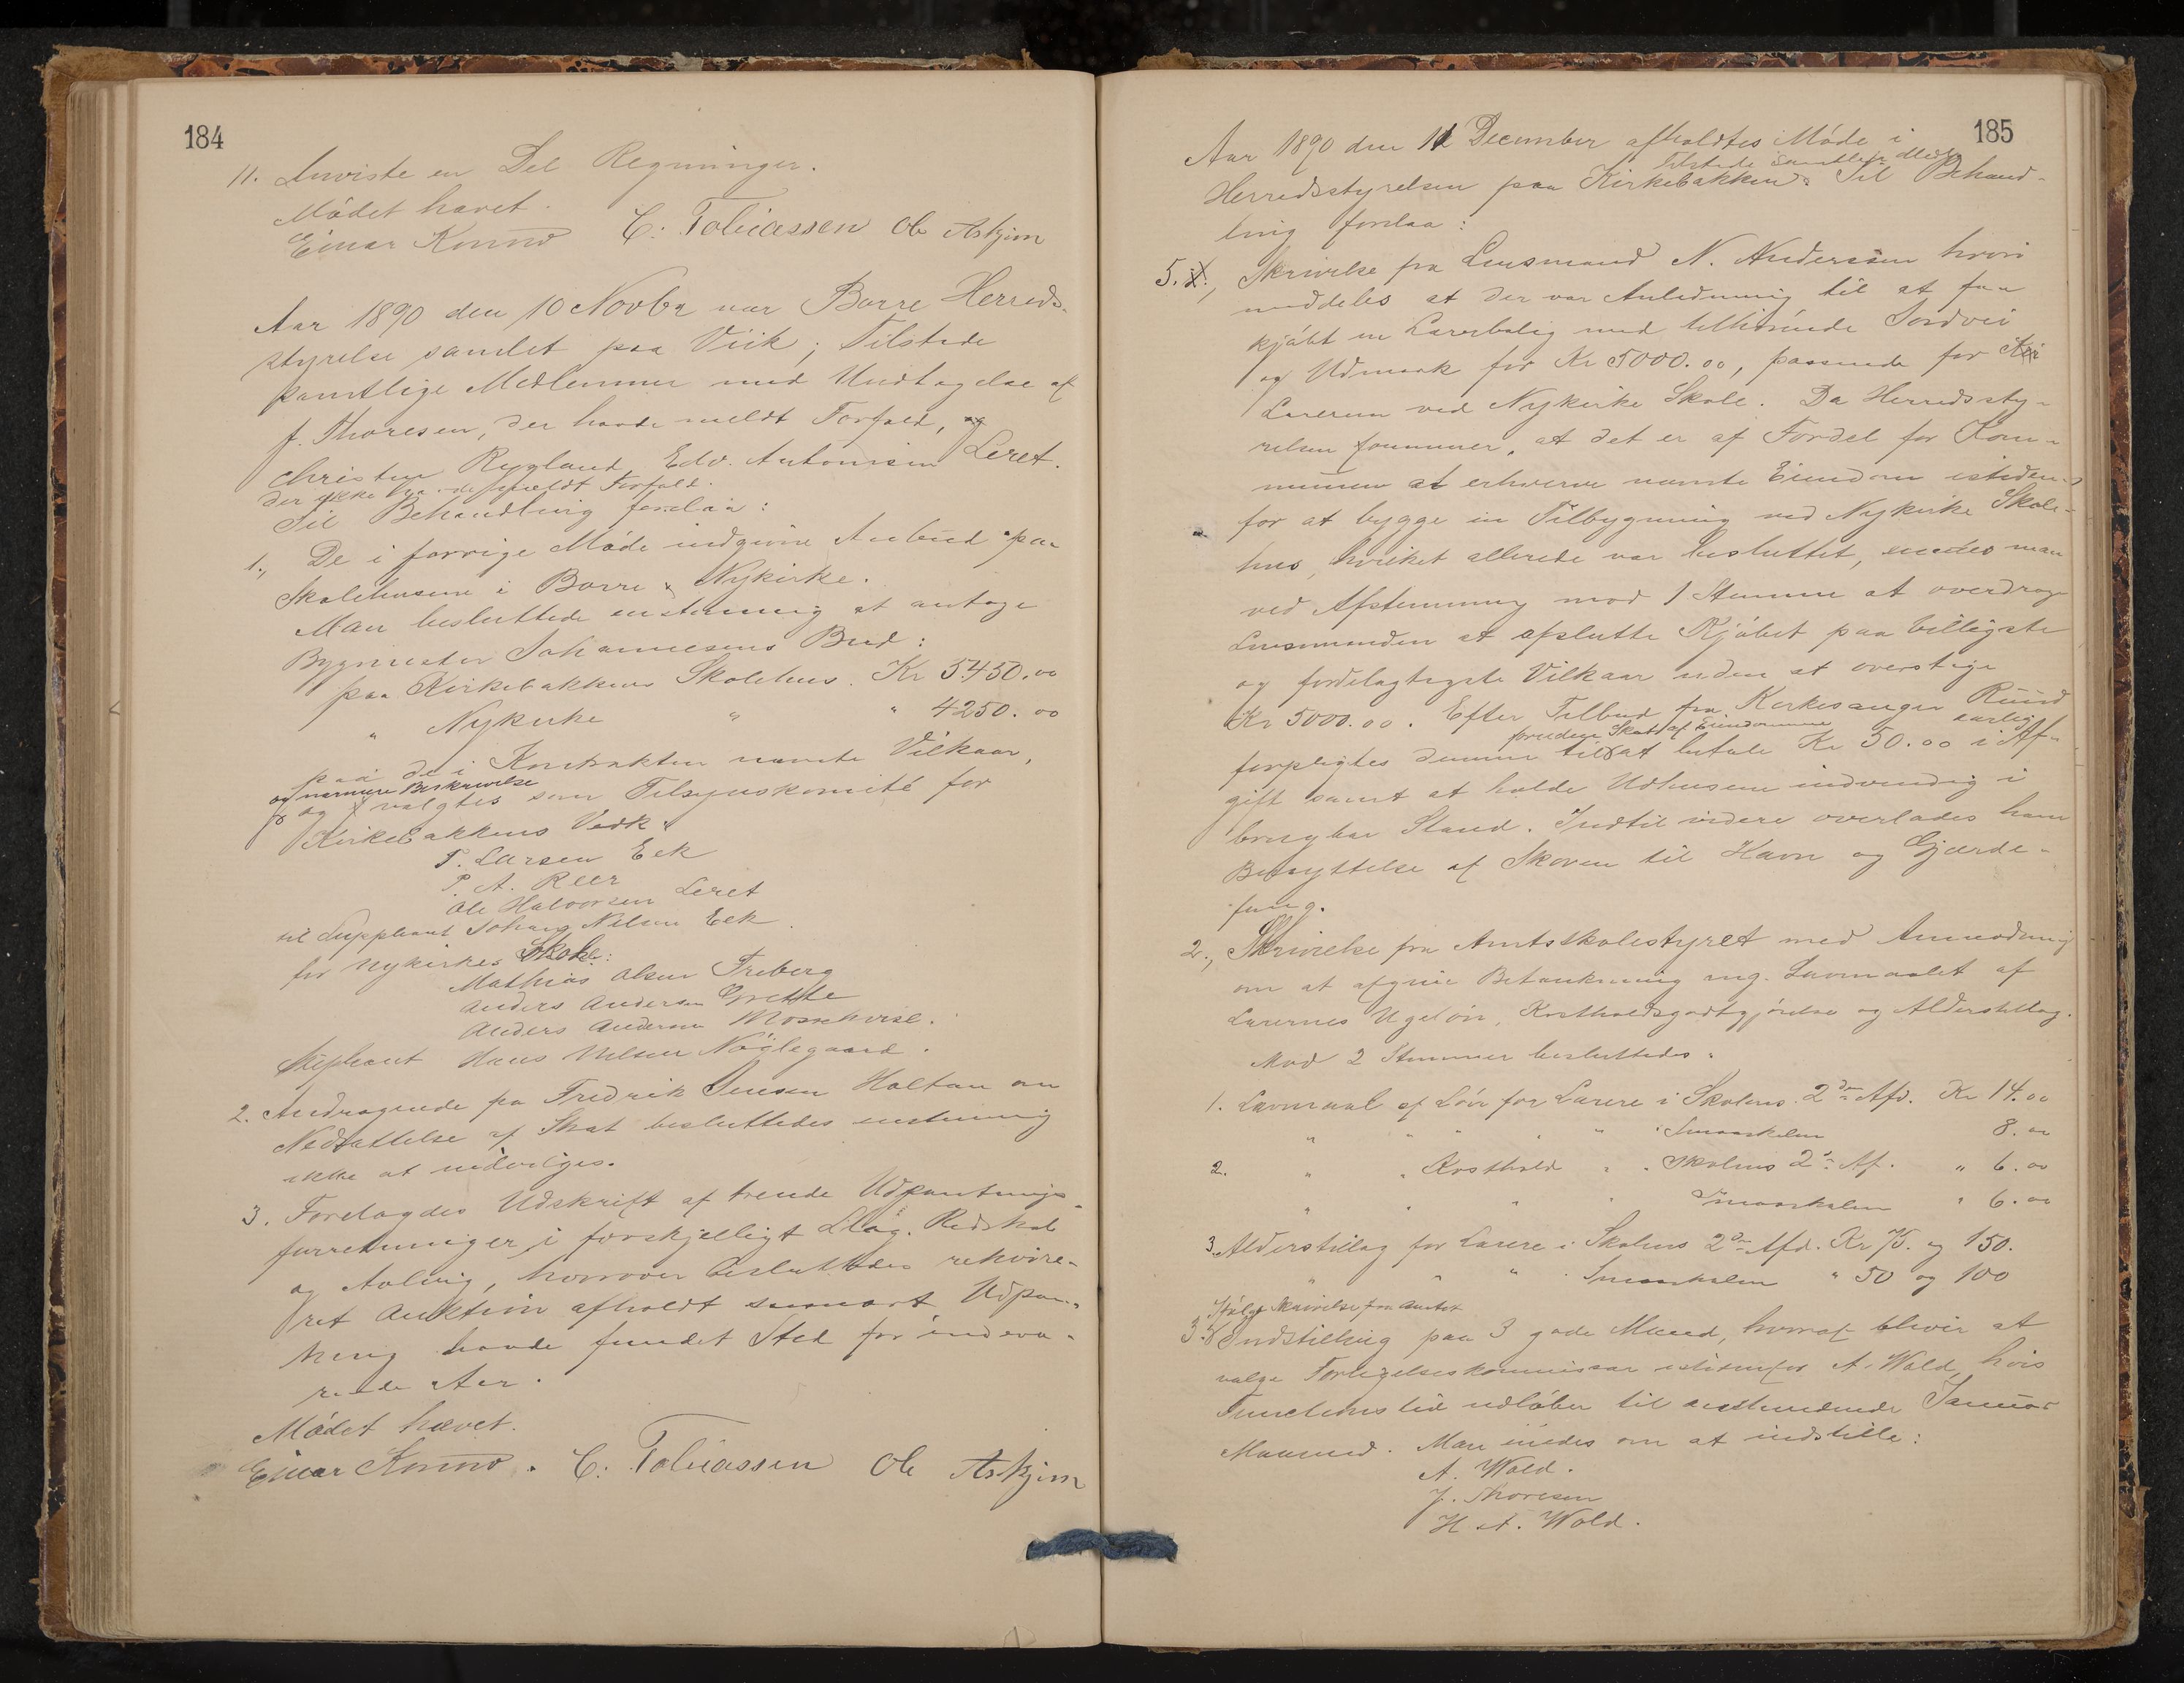 184
11. Anviste en Del Regninger.
Mödet hævet.
Einar Konnow C: Tobiassen Ole Askjem
Aar 1890 den 10 Novbr var Borre Herreds-
styrelse samlet paa Viik; Tilstede
samtlige Medlemmer med Undtagelse af
J. Thoresen, der havde meldt Forfald, og
Christen Rygland, Edv. Antonisen Leret.
der ikke havde meldt Forfald.
Til Behandling forelaa:
1., De i forrige Möde indgivne Anbud paa
Skolehusene i Borre & Nykirke.
Man besluttede enstemmig at antage
Bygmester Johannesens Bud:
paa Kirkebakkens Skolehus. Kr 5450.00
" Nykirke " " 4250.00
paa de i Kontrakten nævnte Vilkaar,
og nærmere Beskrivelse
og valgtes som Tilsynskomité for
Kirkebakkens Vedk:
T. Larsen Eek
P. A. Reer
Ole Halvorsen Leret
til Suppleant Johan Nilsen Eek.
for Nykirkes Skole:
Mathias Olsen Freberg
Anders Andersen Grette
Anders Andersen
Hans Nilsen Nöglegaard.
2. Andragende fra Fredrik Jensen Holtan om
Nedsættelse af Skat besluttedes enstemmig
ikke at indvilges.
3. Foretagdes Udskrift af trende Udpantnings-
forretninger i forskjelligt Slag. Redskab
og Avling, hvorover besluttedes rekvire-
ret Auktion afholdt snarest Udpan-
tning havde fundet Sted for indeva-
rende Aar.
Mödet hævet.
Einar Konnow. C: Tobiassen Ole Askjem
185
Aar 1890 den 11 December afholdtes Möde i
Tilstede samtlige Medl.
Herredsstyrelsen paa Kirkebakken. Til Behand-
ling forelaa:
5. 1., Skrivelse fra Lensmand N. Anderssen hvori
meddeles at der var Anledning til at faa
kjöbt en Lærerbolig med tilhörende Jordvei
og Udmark for Kr 5000.00, passende for
Læreren ved Nykirke Skole. Da Herredssty-
relsen formener, at det er af Fordel for Kom-
munen at erhverve nævnte Eiendom isteden-
for at bygge en Tilbygning ved Nykirke Skole-
hus, hvilket allerede var besluttet, enedes man
ved Afstemning mod 1 Stemme at overdrage
Lensmanden at afslutte Kjöbet paa billigste
og fordelagtigste Vilkaar uden at overstige
Kr 5000.00. Efter Tilbud fra Kirkesanger Ruud
foruden Skat af Eiendommen aarlig
forpligtes denne til at betale Kr 50.00 i Af-
gift samt at holde Udhusene indvendig i
brugbar Stand. Indtil videre overlades ham
Benyttelse af Skoven til Havn og Gjærde-
fang.
2., Skrivelse fra Amtsskolestyret med Anmodning
om at afgive Betænkning ang. Lavmaalet af
Lærernes Ugelön, Kostholdsgodtgjörelse og Alderstillæg.
Mod 2 Stemmer besluttedes:
1. Lavmaal af Lön for Lærere i Skolens 2den Afd. Kr 14.00
" " " " " Smaaskolen 8.00
2. " " Kosthold " " Skolens 2den Af. " 6.00
" " " " Smaaskolen " 6.00
3. Alderstillæg for Lærere i Skolens 2den Afd. Kr 75. og 150.
" " " Smaaskolen " 50 og 100
Ifölge Skrivelse fra Amtet
3. Indstilling paa 3 gode Mænd, hvoraf bliver at
vælge Forligelseskommissær istedenfor A. Wold, hvis
Functionstid udlöber til anstundende Januar
Maaned. Man enedes om at indstille:
A. Wold.
J. Thoresen
H. A. Wold.